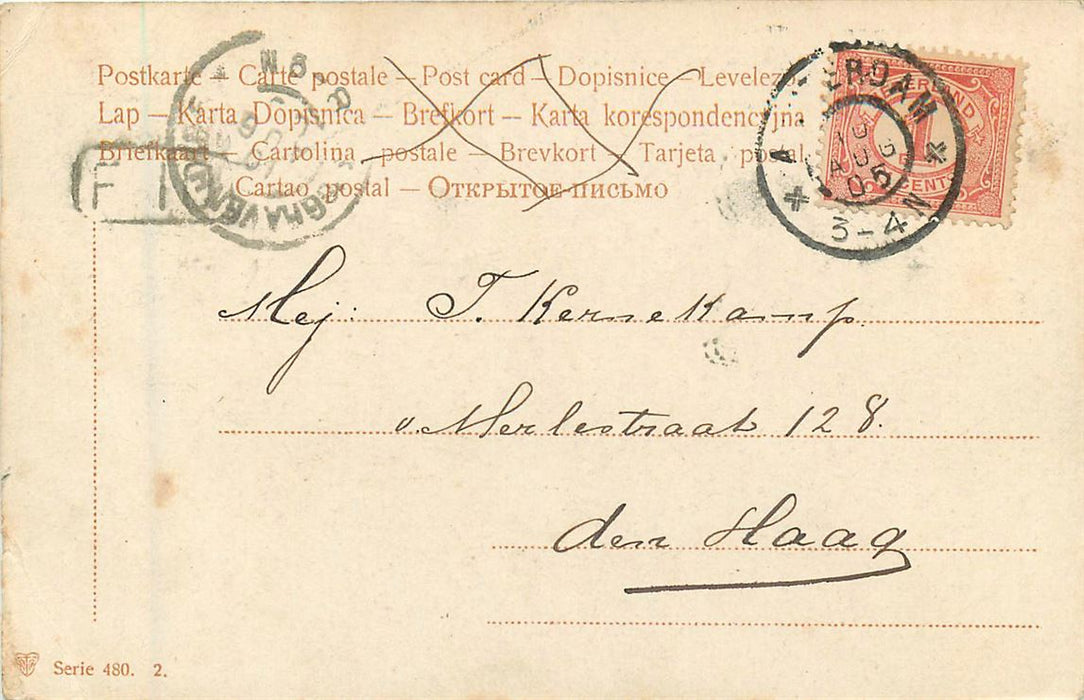 Postkarte – Carte postale – Post card – Dopisnice – Levelező
Lap – Karta Dopisnica – Brefkort – Karta korespondencyjna
Briefkaart – Cartolina postale – Brevkort – Tarjeta postal
Cartao postal – Открытое-письмо
AUG
05
3-4N
CENT
F
Mej: T. Kernekamp.
v. Merlestraat 128.
den Haag
Serie 480. 2.